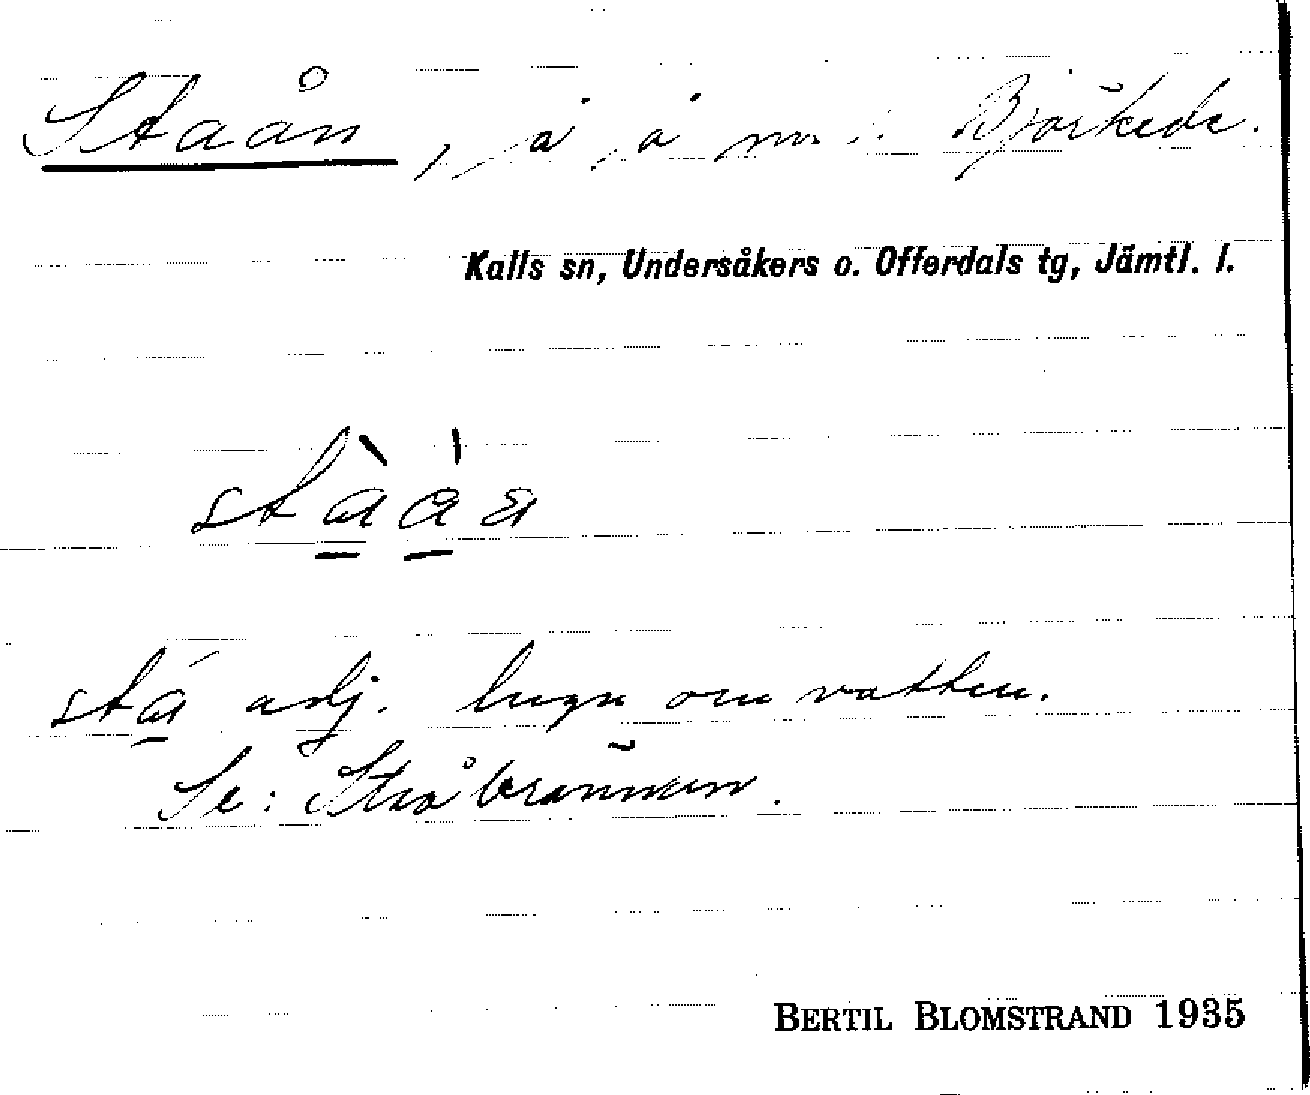 Staån, å, å no. i Björkede.
Kalls sn, Undersåkers o. Offerdals tg, Jämtl. l.
adj. lugn om vatten.
Se: Ståbrännan.
BERTIL BLOMSTRAND 1935